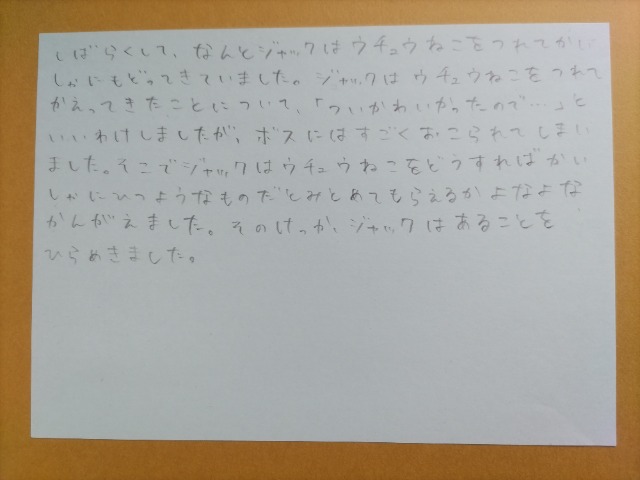 しばらくして、なんとジャックはウチュウねこをつれてかい
しゃにもどってきていました。ジャックはウチュウねこをつれて
かえってきたことについて、「ついかわいかったので…」と
いいわけしましたが、ボスにはすごくおこられてしまい
ました。そこでジャックはウチュウねこをどうすればかい
しゃにひつようなものだとみとめてもらえるかよなよな
かんがえました。そのけっか、ジャックはあることを
ひらめきました。